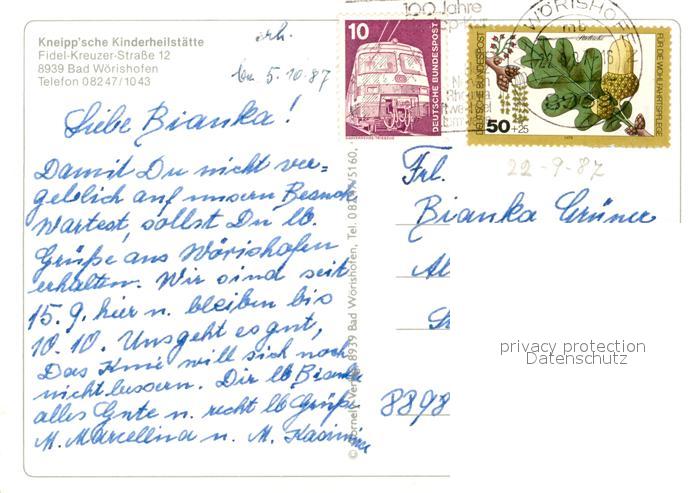 Kneipp'sche Kinderheilstätte
Fidel-Kreuzer-Straße 12
8939 Bad Wörishofen
Telefon 08247/1043
erh.
5.10.87
Liebe Bianka!
Damit Du nicht ver=
geblich auf unsern Besuch
wartest, sollst Du lb.
Grüße aus Wörishofen
erhalten. Wir sind seit
15.9. hier u. bleiben bis
10.10. Uns geht es gut,
Das Knie will sich noch
nicht bessern. Dir lb Bianka
alles Gute u. recht lb Grüße
M. Marcellina u. M. Kasimira
8939 Bad Wörishofen, Tel. 08247/5160,
100 Jahre
WÖRISHOFEN
10
DEUTSCHE BUNDESPOST
DEUTSCHE BUNDESPOST
50+25
FÜR DIE WOHLFAHRTSPFLEGE
22-9-87
Frl.
Bianka Grüner
8898
privacy protection
Datenschutz